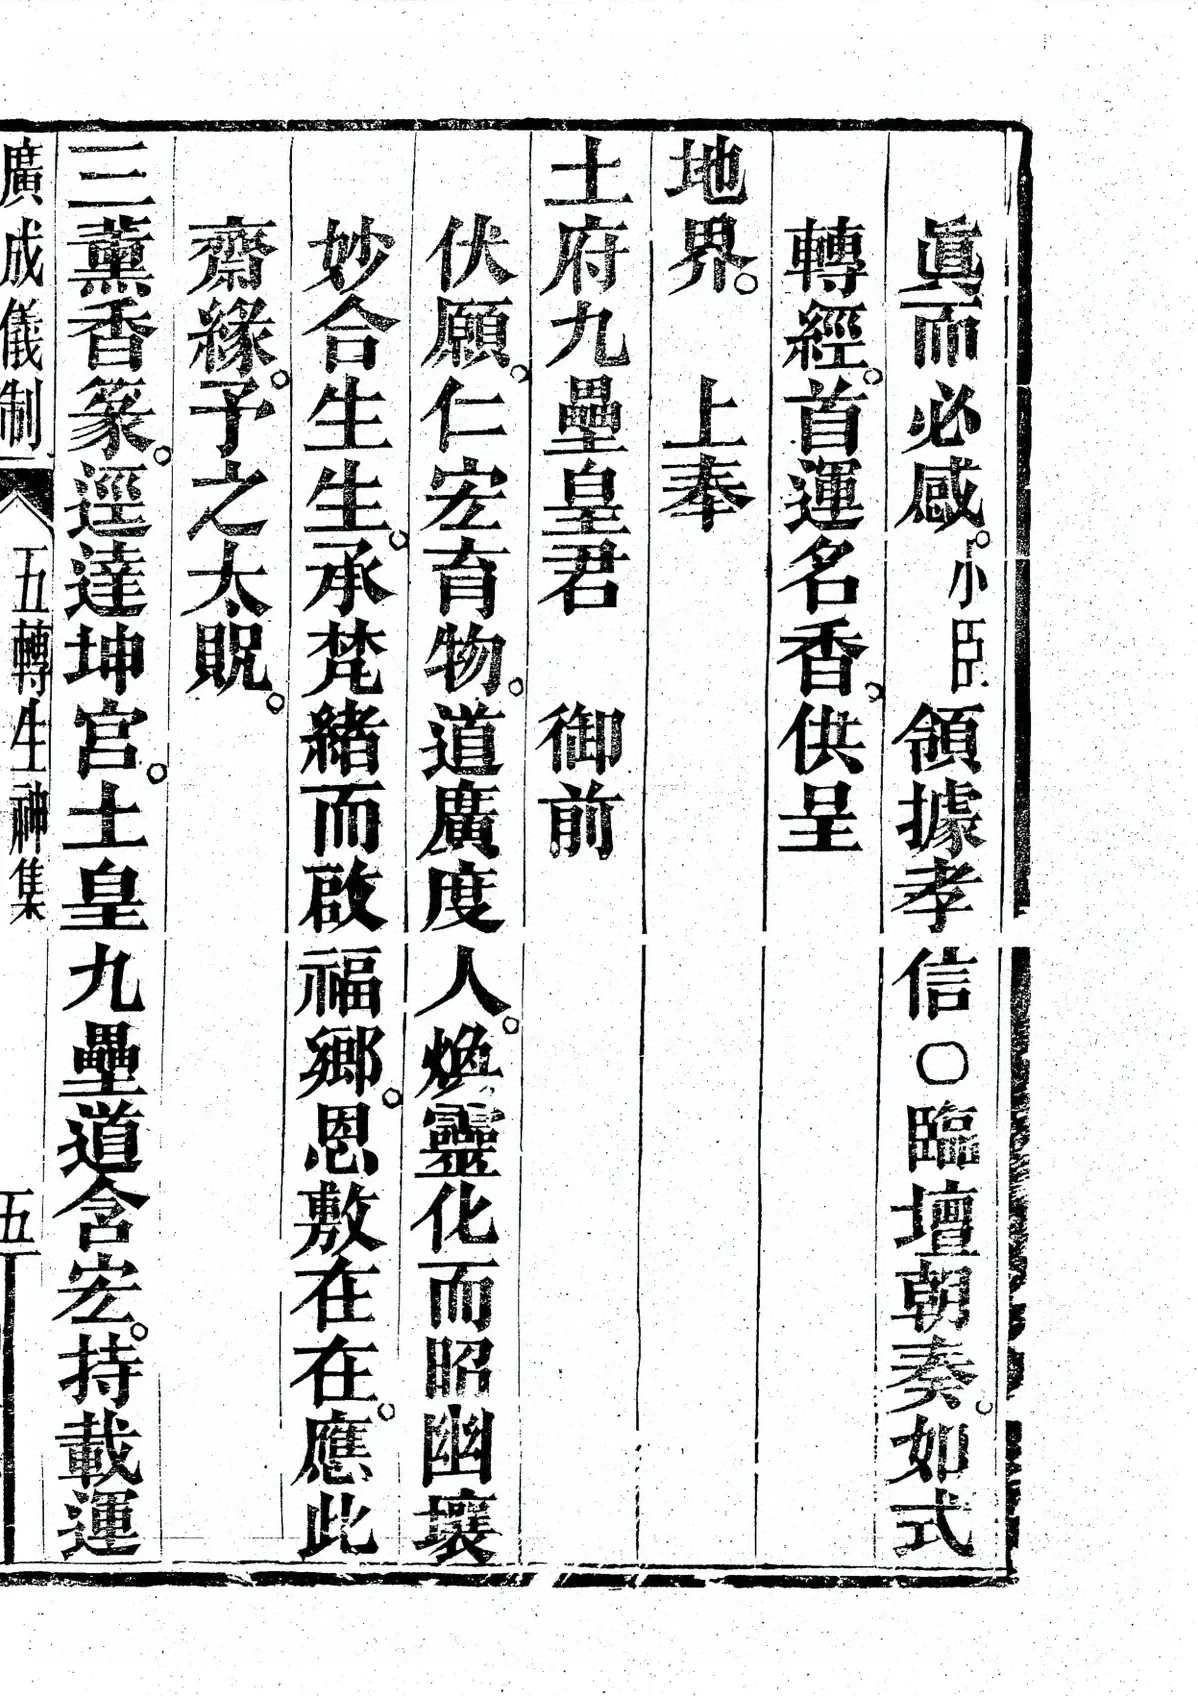 眞而必感。小臣領據孝信○臨壇朝奏。如式
轉經。首運名香。供呈
地界。　上奉
土府九壘皇君　御前
伏願。仁宏育物。道廣度人。煥靈化而昭幽壤
妙合生生。承梵緒而啟福鄉。恩敷在在。應此
齋緣。予之太貺。
三薰香篆。逕達坤宫。土皇九壘道含宏。持載運
廣成儀制　五轉生神集　五